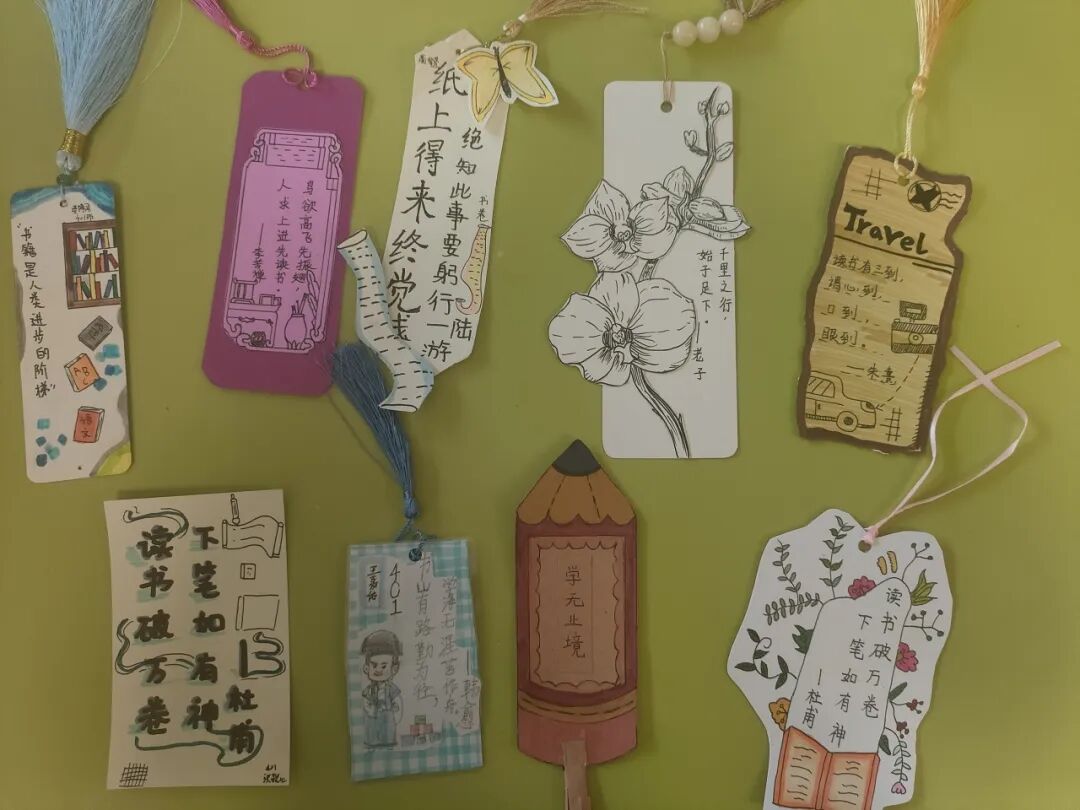 “书籍是人类进步的阶梯”
ABC
语文
鸟欲高飞先振翅，
人求上进先读书。
——李苦禅
纸上得来终觉浅
绝知此事要躬行一
陆游
书卷
千里之行，
始于足下。
——老子
Travel
读书有三到，
谓心到，
口到，
眼到。
—朱熹
读书破万卷
下笔如有神
杜甫
401
书山有路勤为径，
学海无涯苦作舟
—韩愈
学无止境
读书破万卷
下笔如有神
—杜甫